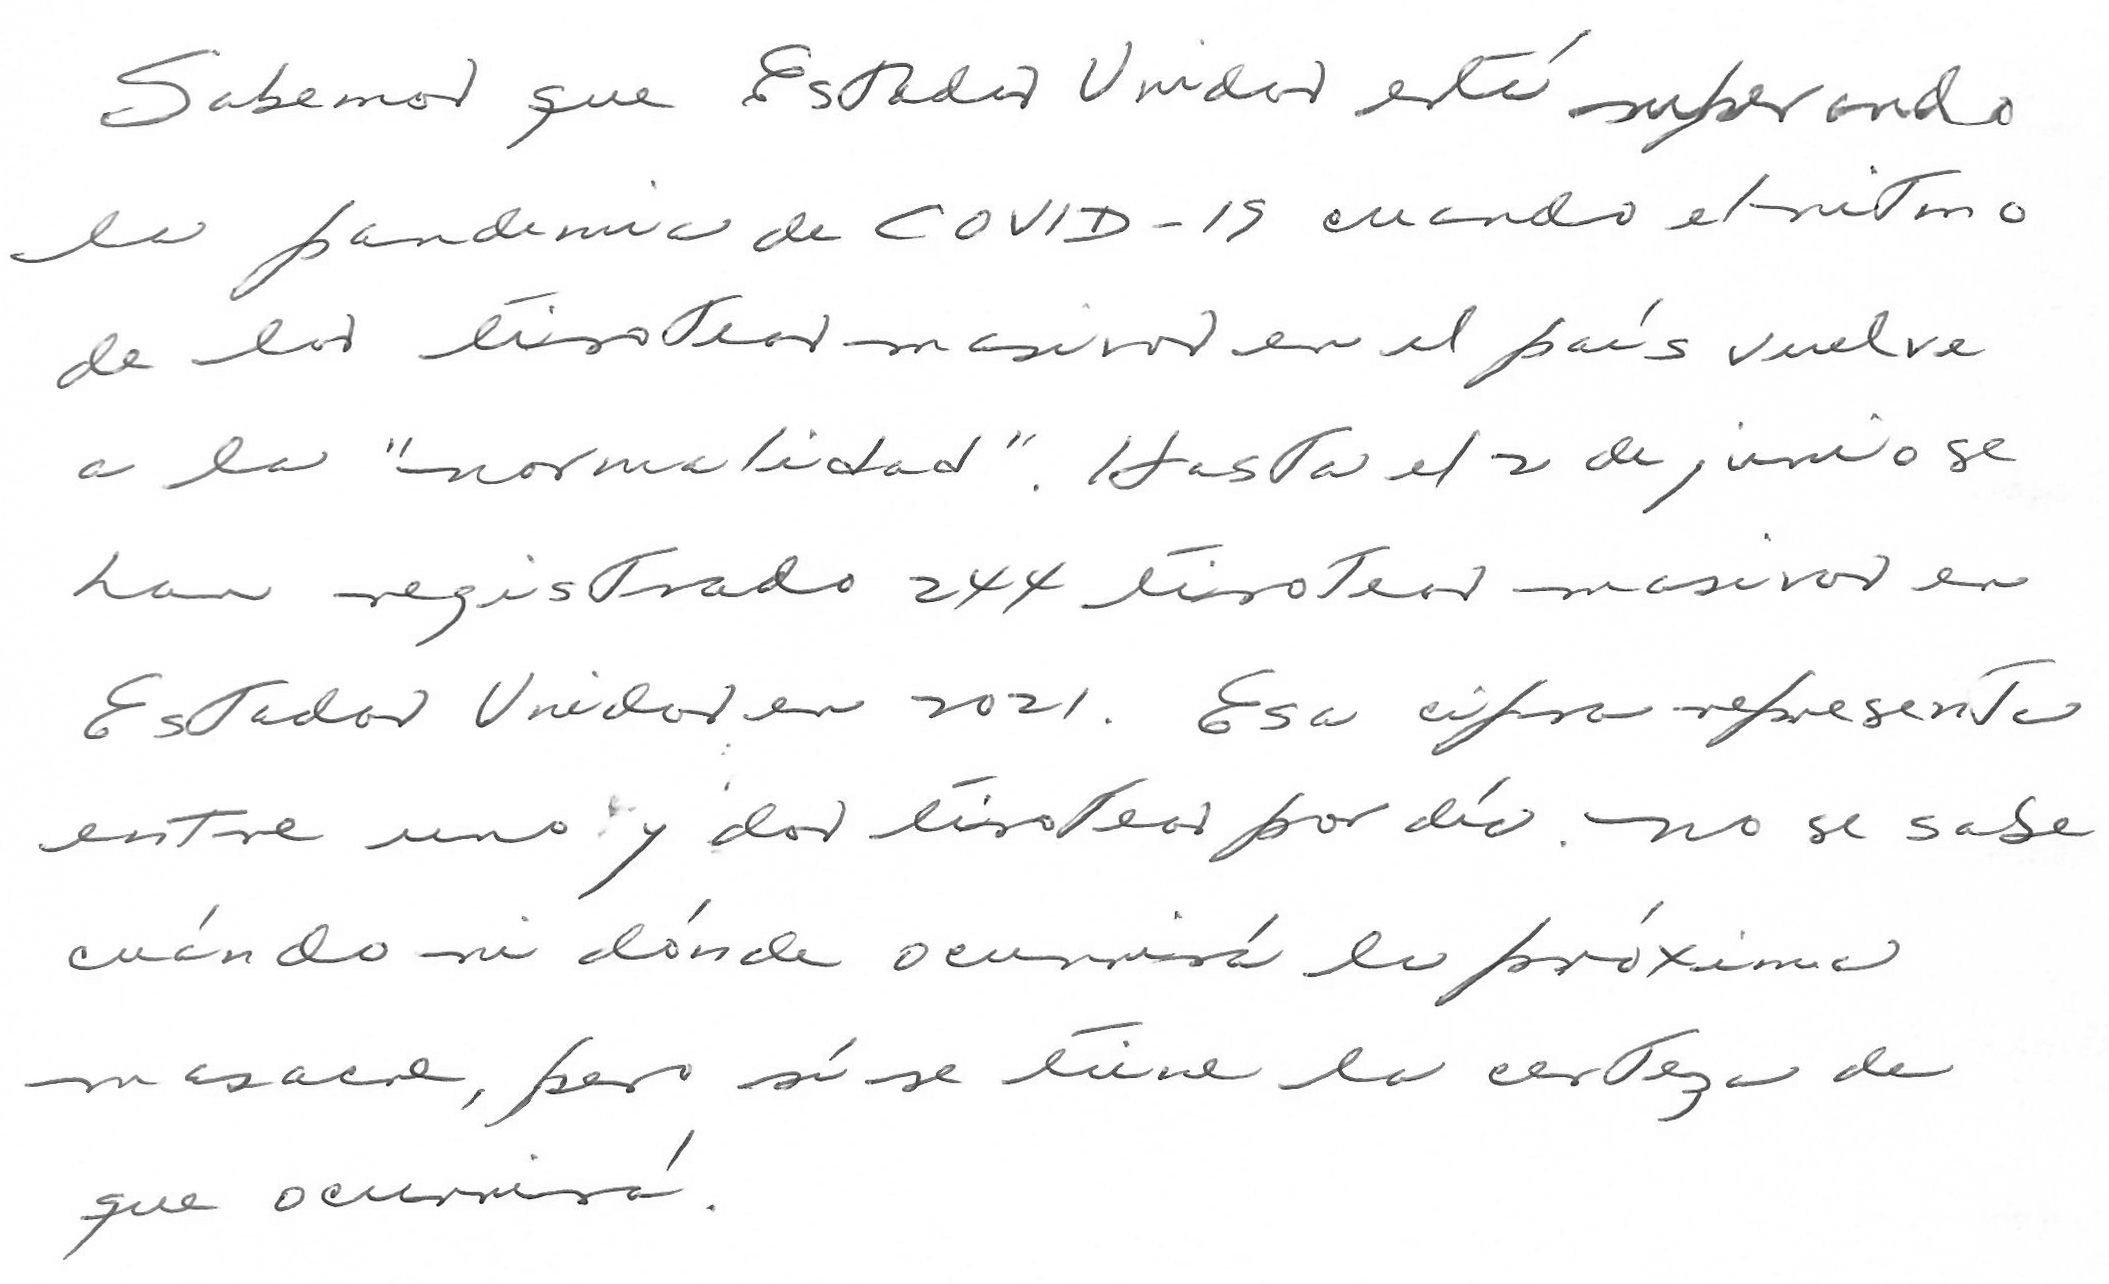 Sabemos que Estados Unidos está superando
la pandemia de COVID-19 cuando el ritmo
de los tiroteos masivos en el país vuelve
a la "normalidad". Hasta el 2 de junio se
han registrado 244 tiroteos masivos en
Estados Unidos en 2021. Esa cifra representa
entre uno y dos tiroteos por día. No se sabe
cuándo ni dónde ocurrirá la próxima
masacre, pero sí se tiene la certeza de
que ocurrirá.